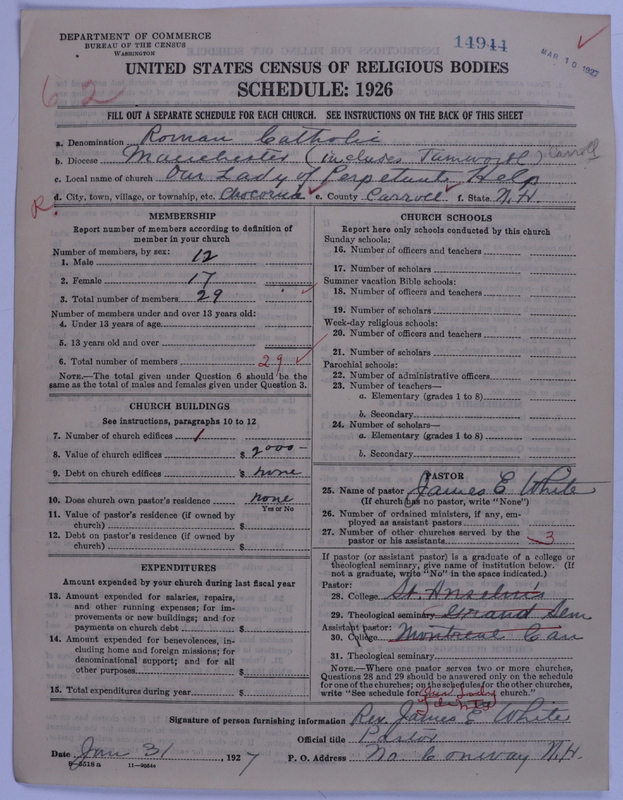 DEPARTMENT OF COMMERCE
BUREAU OF THE CENSUS
WASHINGTON
14944
MAR 10 1927
UNITED STATES CENSUS OF RELIGIOUS BODIES
SCHEDULE: 1926
62
FILL OUT A SEPARATE SCHEDULE FOR EACH CHURCH. SEE INSTRUCTIONS ON THE BACK OF THIS SHEET
a. Denomination Roman Catholic
b. Diocese Manchester (includes Tamworth) Carroll
c. Local name of church Our Lady of Perpetual Help
d. City, town, village, or township, etc. Chocorua e. County Carroll f. State N.H.
R
MEMBERSHIP
Report number of members according to definition of
member in your church
Number of members, by sex:
1. Male 12
2. Female 17
3. Total number of members 29
Number of members under and over 13 years old:
4. Under 13 years of age
5. 13 years old and over
6. Total number of members 29
NOTE.—The total given under Question 6 should be the
same as the total of males and females given under Question 3.
CHURCH BUILDINGS
See instructions, paragraphs 10 to 12
7. Number of church edifices 1
8. Value of church edifices $ 2000-
9. Debt on church edifices $ none
10. Does church own pastor's residence none
Yes or No
11. Value of pastor's residence (if owned by
church) $
12. Debt on pastor's residence (if owned by
church) $
EXPENDITURES
Amount expended by your church during last fiscal year
13. Amount expended for salaries, repairs,
and other running expenses; for im-
provements or new buildings; and for
payments on church debt $
14. Amount expended for benevolences, in-
cluding home and foreign missions; for
denominational support; and for all
other purposes $
15. Total expenditures during year $
CHURCH SCHOOLS
Report here only schools conducted by this church
Sunday schools:
16. Number of officers and teachers
17. Number of scholars
Summer vacation Bible schools:
18. Number of officers and teachers
19. Number of scholars
Week-day religious schools:
20. Number of officers and teachers
21. Number of scholars
Parochial schools:
22. Number of administrative officers
23. Number of teachers—
a. Elementary (grades 1 to 8)
b. Secondary
24. Number of scholars—
a. Elementary (grades 1 to 8)
b. Secondary
PASTOR
25. Name of pastor James E White
(If church has no pastor, write "None")
26. Number of ordained ministers, if any, em-
ployed as assistant pastors
27. Number of other churches served by the
pastor or his assistants 3
If pastor (or assistant pastor) is a graduate of a college or
theological seminary, give name of institution below. (If
not a graduate, write "No" in the space indicated.)
Pastor:
28. College St. Anselm's
29. Theological seminary Grand Sem
Assistant pastor:
30. College Montreal Can
31. Theological seminary
NOTE.—Where one pastor serves two or more churches,
Questions 28 and 29 should be answered only on the schedule
for one of the churches; on the schedules for the other churches,
write "See schedule for Our Lady church."
Signature of person furnishing information Rev. James E White
Official title Pastor
Date Jan 31, 1927 P. O. Address No. Conway N.H.
8-5518a 11-9054